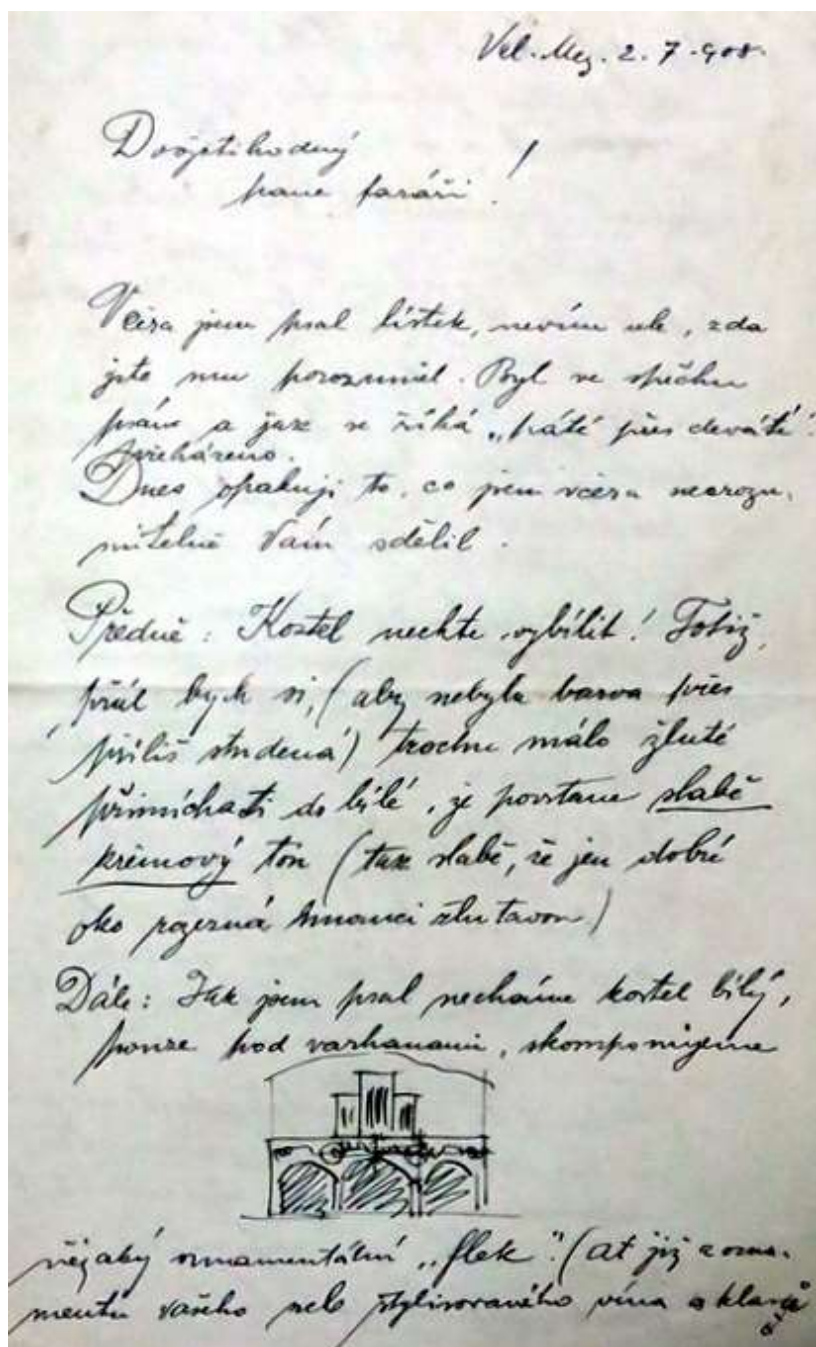 Vel. Mez. 2. 7. 908.
Dvojctihodný
pane faráři!
Včera jsem psal lístek, nevím ale, zda
jste mu porozuměl. Byl ve spěchu
psán a jak se říká „páté přes deváté“
přeházeno.
Dnes opakuji to, co jsem včera nesrozu-
mitelně Vám sdělil.
Předně: Kostel nechte vybílit! Totiž,
přál bych si, (aby nebyla barva přes
příliš studená) trochu málo žluté
přimíchati do bílé, že povstane slabě
krémový tón (tak slabě, že jen dobré
oko pozná žlutavou)
Dále: Jak jsem psal necháme kostel bílý,
pouze pod varhanami, skomponujeme
nějaký ornamentální „flek“. (ať již z orna-
mentu vašeho nebo stylisovaného vína a klasů